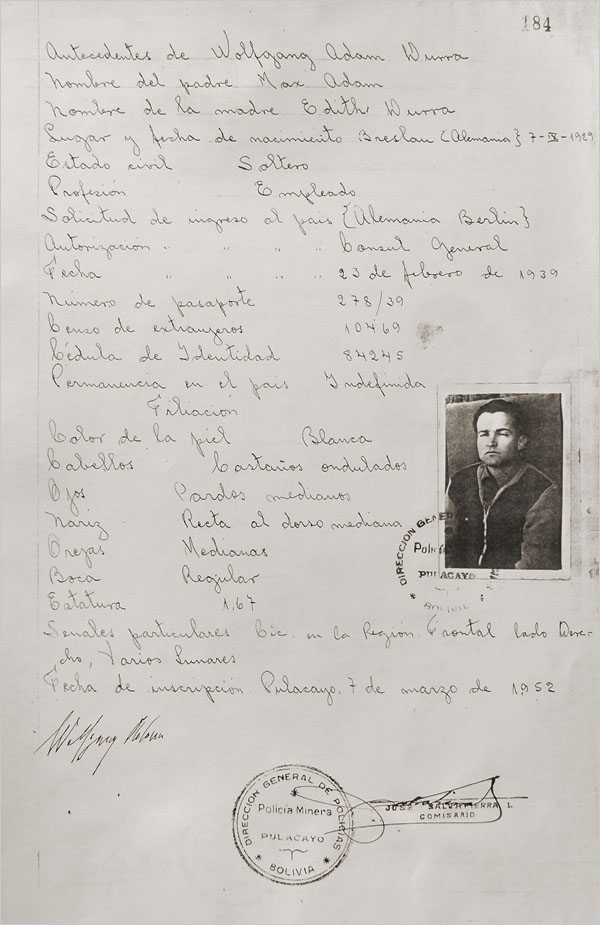 184
Antecedentes de Wolfgang Adam Wurra
Nombre del padre Max Adam
Nombre de la madre Edith Wurra
Lugar y fecha de nacimiento Breslau {Alemania} 7-IX-1929
Estado civil Soltero
Profesión Empleado
Solicitud de ingreso al país {Alemania Berlin}
Autorización " " " " Consul General
Fecha " " " " 23 de febrero de 1939
Número de pasaporte 278/39
Censo de extranjeros 10469
Cédula de Identidad 84245
Permanencia en el país Indefinida
Filiación
Color de la piel Blanca
Cabellos Castaños ondulados
Ojos Pardos medianos
Naríz Recta al dorso mediana
Orejas Medianas
Boca Regular
Estatura 1,67
Senales particulares Cic. en la Región Frontal lado Dere-
cho, Varios Lunares
Fecha de inscripción Pulacayo, 7 de marzo de 1952
DIRECCION GENER
Polic
PULACAYO
BOLIVIA
Wolfgang Adam
DIRECCION GENERAL DE POLICIAS
Policía Minera
PULACAYO
BOLIVIA
JOSE SALVATIERRA L.
COMISARIO